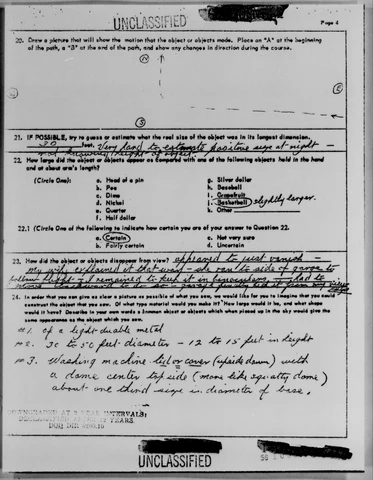 UNCLASSIFIED
Page 4
20. Draw a picture that will show the motion that the object or objects made. Place an "A" at the beginning
of the path, a "B" at the end of the path, and show any changes in direction during the course.
21. IF POSSIBLE, try to guess or estimate what the real size of the object was in its longest dimension.
30 feet. Very hard to estimate positive size at night -
not knowing height of object.
22. How large did the object or objects appear as compared with one of the following objects held in the hand
and at about arm's length?
(Circle One):
a. Head of a pin
b. Pea
c. Dime
d. Nickel
e. Quarter
f. Half dollar
g. Silver dollar
h. Baseball
i. Grapefruit
j. Basketball slightly larger.
k. Other
22.1 (Circle One of the following to indicate how certain you are of your answer to Question 22.
a. Certain
b. Fairly certain
c. Not very sure
d. Uncertain
23. How did the object or objects disappear from view? appeared to just vanish -
my wife explained it that way - she ran to side of garage to
light - I remained to keep it in - had to
move - so garage hid it from my view
24. In order that you can give as clear a picture as possible of what you saw, we would like for you to imagine that you could
construct the object that you saw. Of what type material would you make it? How large would it be, and what shape
would it have? Describe in your own words a common object or objects which when placed up in the sky would give the
same appearance as the object which you saw.
#1. of a light durable metal
#2. 30 to 50 feet diameter - 12 to 15 feet in height
#3. Washing machine lid or cover (upside down) with
a dome center top side (more like squatty dome)
about one third size in diameter of base.
DOWNGRADED AT 3 YEAR INTERVALS;
DECLASSIFIED AFTER 12 YEARS.
DOD DIR 5200.10
UNCLASSIFIED